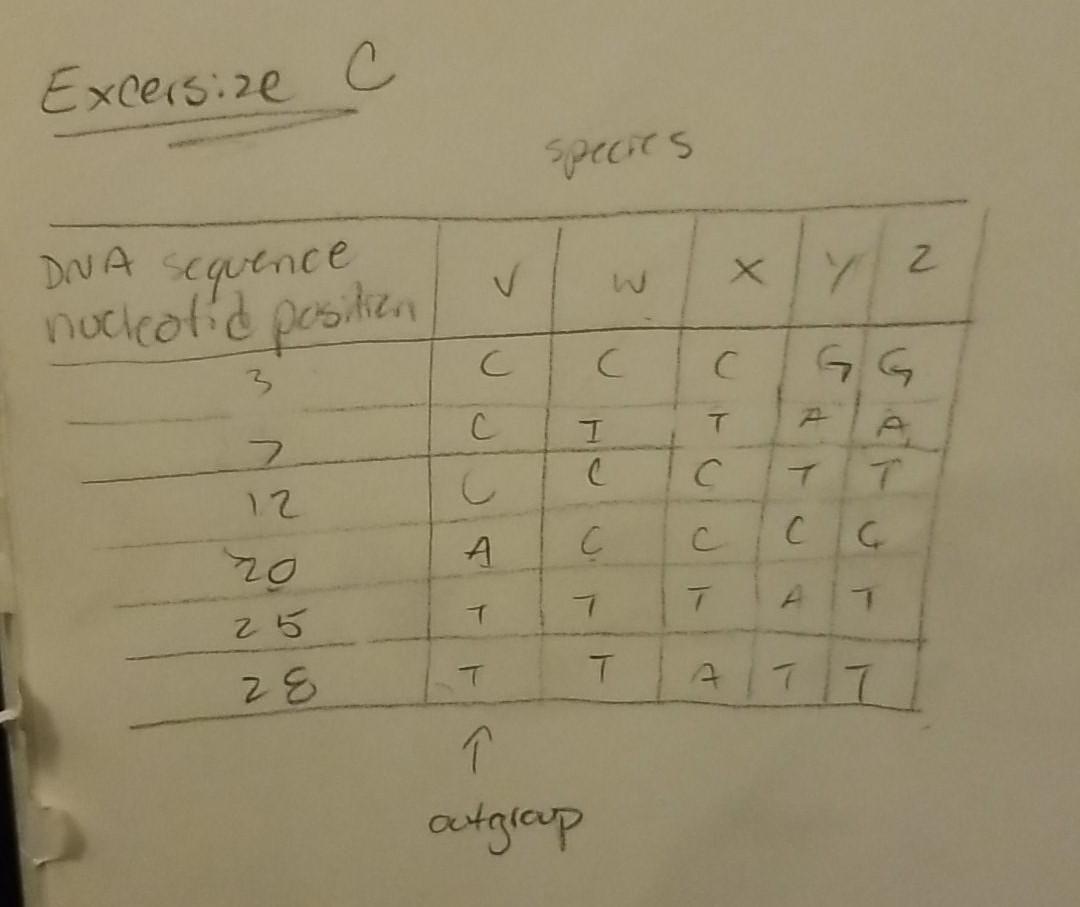 Excersize C
species
DNA sequence
nucleotid position V W X Y Z
3 C C C G G
7 C T T A A
12 C C C T T
20 A C C C C
25 T T T A T
28 T T A T T
↑
outgroup